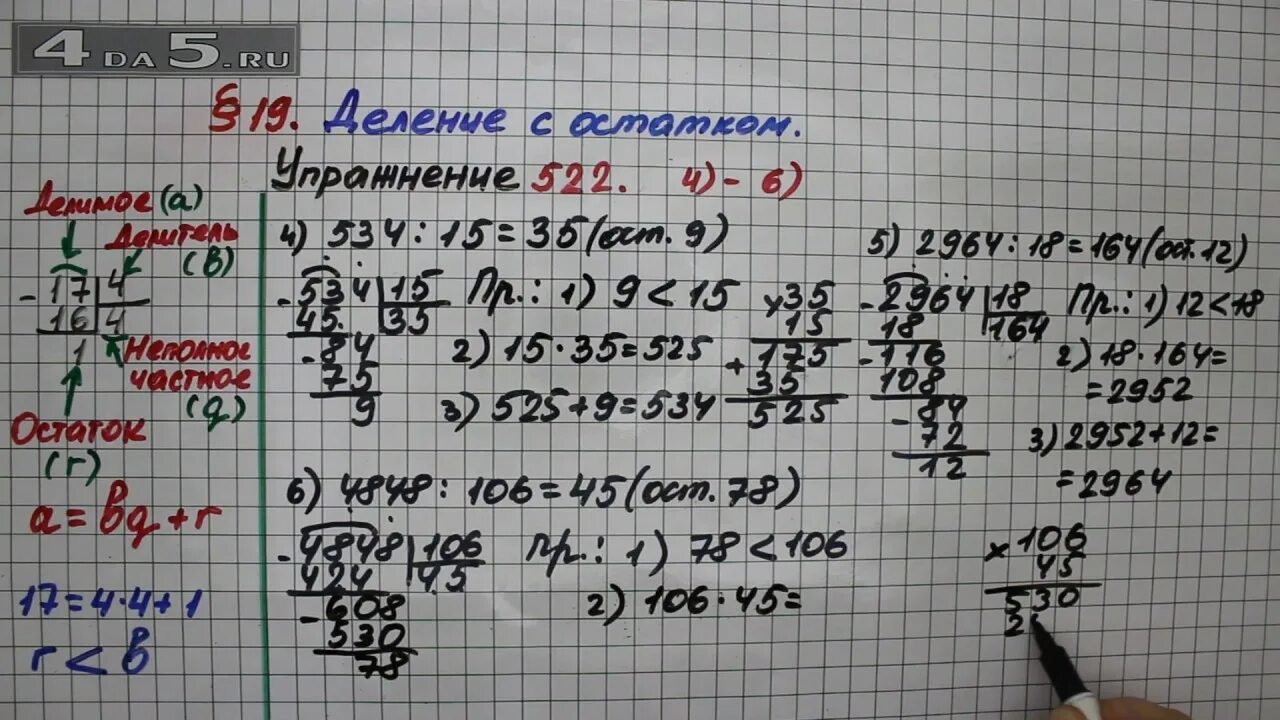 4DA5.RU
§ 19. Деление с остатком.
Упражнение 522. 4) - 6)
Делимое (а)
Делитель (в)
- 17 | 4
16 | 4
1
Неполное частное (q)
Остаток (r)
a = bq + r
17 = 4 · 4 + 1
r < b
4) 534 : 15 = 35 (ост. 9)
- 534 | 15
45 | 35
- 84
75
9
Пр.: 1) 9 < 15
2) 15 · 35 = 525
3) 525 + 9 = 534
× 35
15
+ 175
35
525
5) 2964 : 18 = 164 (ост. 12)
- 2964 | 18
18 | 164
- 116
108
- 84
72
12
Пр.: 1) 12 < 18
2) 18 · 164 =
= 2952
3) 2952 + 12 =
= 2964
6) 4848 : 106 = 45 (ост. 78)
- 4848 | 106
424 | 45
- 608
530
78
Пр.: 1) 78 < 106
2) 106 · 45 =
× 106
45
530
2